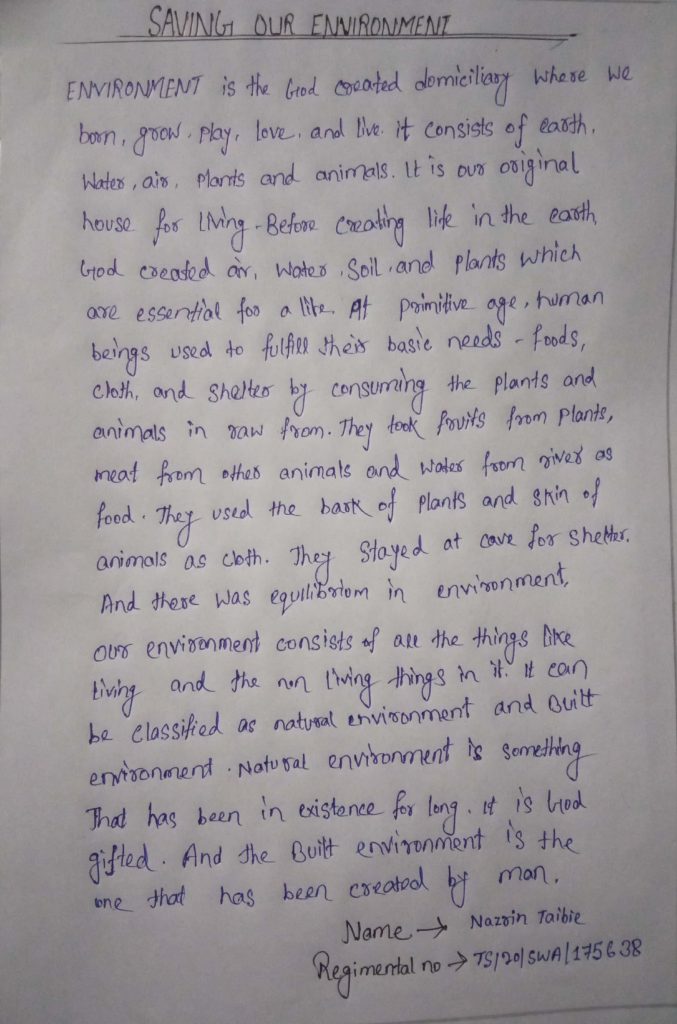 SAVING OUR ENVIRONMENT
ENVIRONMENT is the God created domiciliary where we
born, grow. play, love, and live. it consists of earth,
Water, air, plants and animals. It is our original
house for living. Before creating life in the earth,
God created air, water, soil, and plants which
are essential for a life. At primitive age, human
beings used to fulfill their basic needs - foods,
cloth, and shelter by consuming the plants and
animals in raw from. They took fruits from plants,
meat from other animals and water from river as
food. They used the bark of plants and skin of
animals as cloth. They stayed at cave for shelter.
And there was equilibriom in environment,
our environment consists of all the things like
living and the non living things in it. It can
be classified as natural environment and Built
environment. Natural environment is something
That has been in existence for long. it is God
gifted. And the Built environment is the
one that has been created by man.
Name → Nazrin Taibie
Regimental no → TS/20/SWA/175638